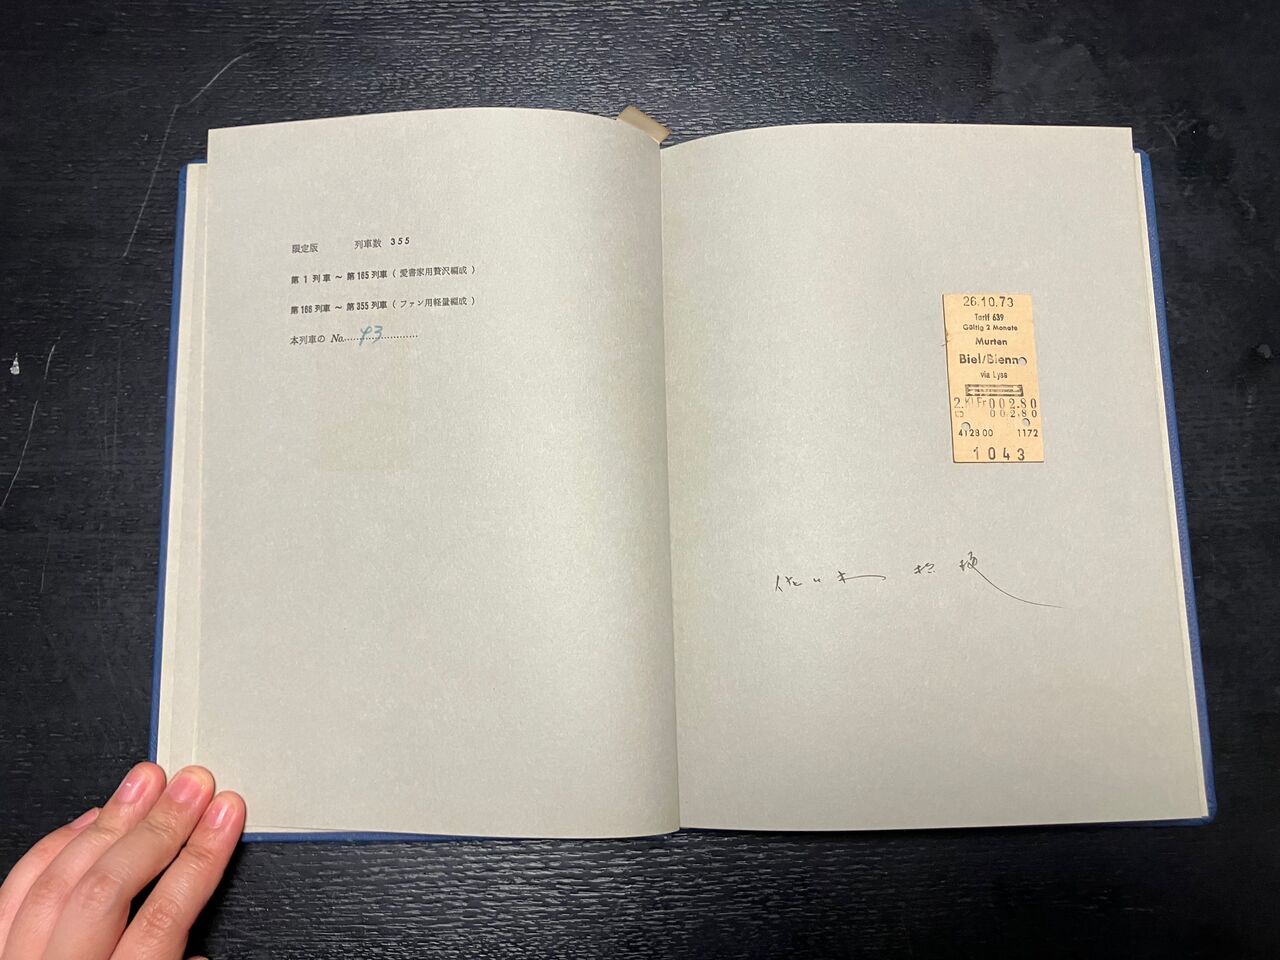 限定版　列車数 355
第 1 列車 ～ 第165列車 ( 愛書家用贅沢編成 )
第166列車 ～ 第355列車 ( ファン用軽量編成 )
本列車の No.....43..........
26.10.73
Tarif 639
Gültig 2 Monate
Murten
Biel/Bienne
via Lyss
2. Kl Fr 002.80
002.80
4128 00 1172
1043
佐々木